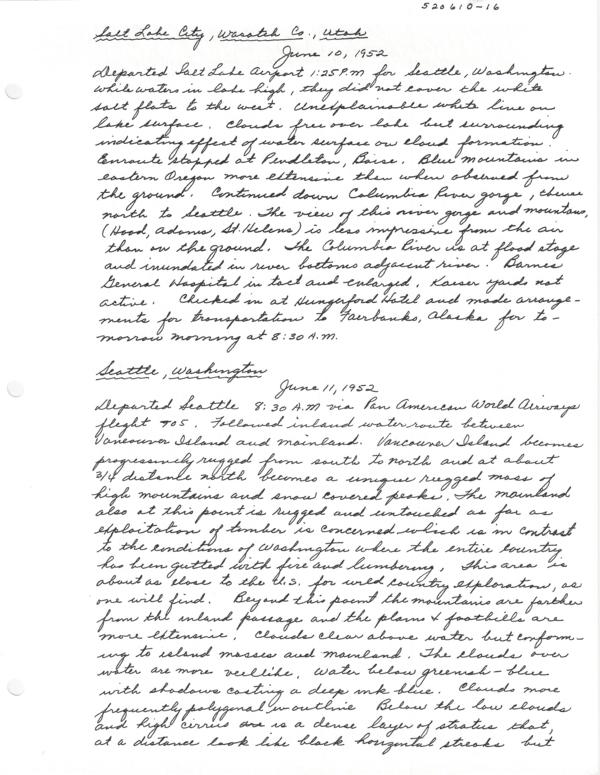 520610-16
Salt Lake City, Wasatch Co., Utah
June 10, 1952
Departed Salt Lake Airport 1:25 P.M for Seattle, Washington.
While waters in lake high, they did not cover the white
salt flats to the west. Unexplainable white line on
lake surface. Clouds free over lake but surrounding
indicating effect of water surface on cloud formation.
Enroute stopped at Pendleton, Boise. Blue mountains in
eastern Oregon more extensive then when observed from
the ground. Continued down Columbia River gorge, thence
north to Seattle. The view of this river gorge and mountains,
(Hood, Adams, St. Helens) is less impressive from the air
than on the ground. The Columbia River is at flood stage
and inundated in river bottoms adjacent river. Barnes
General Hospital in tact and enlarged. Kaiser yards not
active. Checked in at Hungerford Hotel and made arrange-
ments for transportation to Fairbanks, Alaska for to-
morrow morning at 8:30 A.M.
Seattle, Washington
June 11, 1952
Departed Seattle 8:30 A.M via Pan American World Airways
flight 905. Followed inland water route between
Vancouver Island and mainland. Vancouver Island becomes
progressively rugged from south to north and at about
3/4 distance north becomes a unique rugged mass of
high mountains and snow covered peaks. The mainland
also at this point is rugged and untouched as far as
exploitation of timber is concerned which is in contrast
to the conditions of Washington where the entire country
has been gutted with fire and lumbering. This area is
about as close to the U.S. for wild country exploration, as
one will find. Beyond this point the mountains are farther
from the inland passage and the plains & foothills are
more extensive. Clouds clear above water but conform-
ing to island masses and mainland. The clouds over
water are more veillike. Water below greenish-blue
with shadows casting a deep ink blue. Clouds more
frequently polygonal in outline Below the low clouds
and high cirrus is a dense layer of stratus that,
at a distance look like black horizontal streaks but